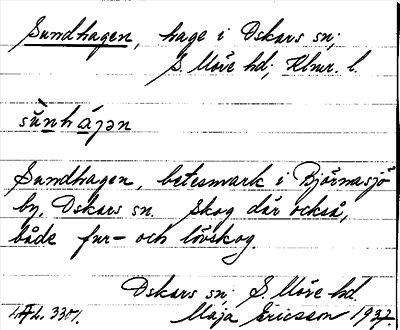 Sundhagen, hage i Oskars sn;
S. Möre hd; Klmr. l.
sùnháɟən
Sundhagen, betesmark i Björnasjö
by, Oskars sn. Skog där också,
både fur- och lövskog.
Oskars sn; S. Möre hd.
3301. Maja Ericsson 1937.